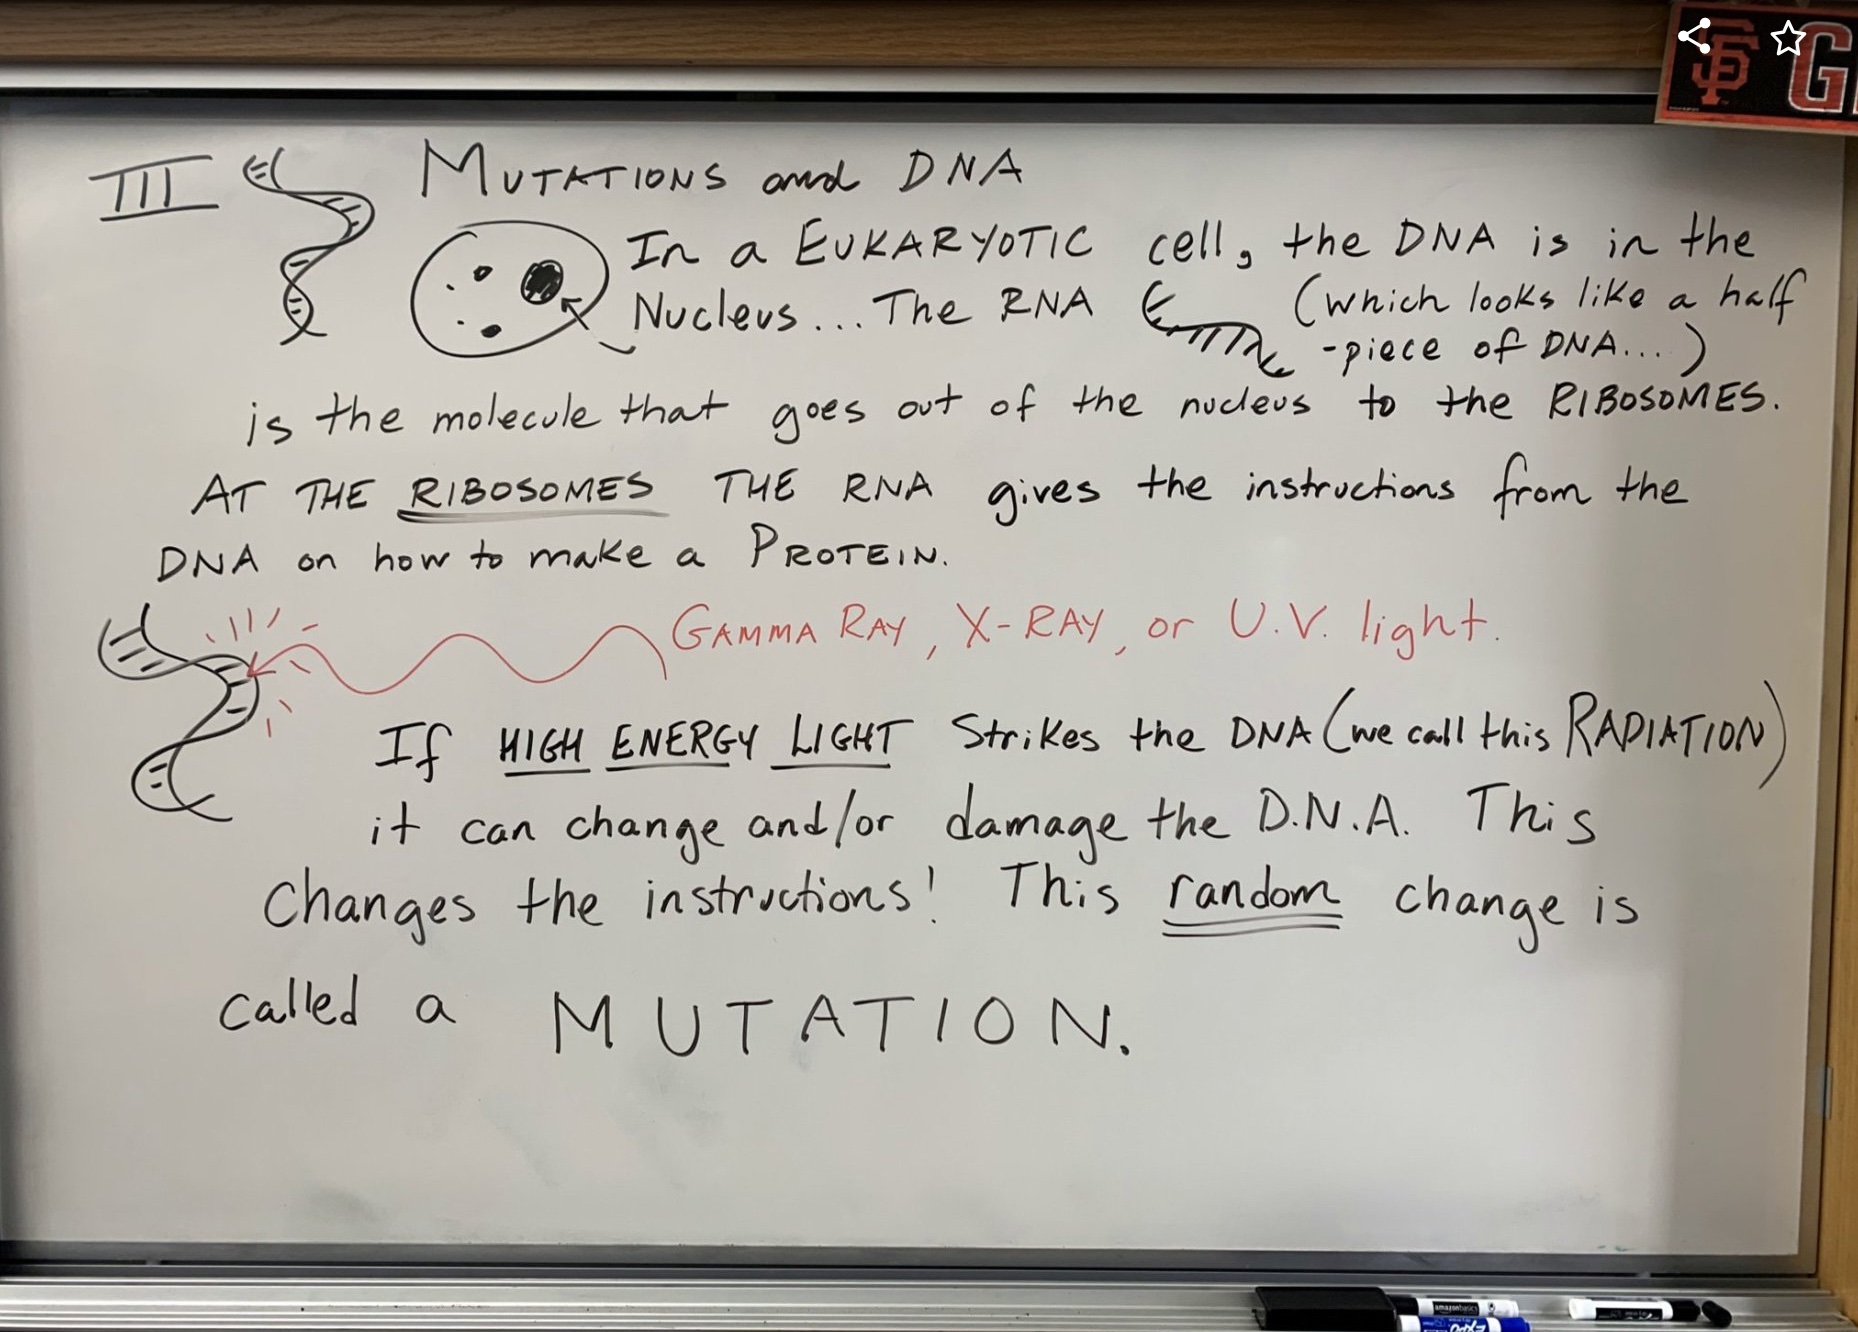 SF G
III MUTATIONS and DNA
In a EUKARYOTIC cell, the DNA is in the
Nucleus... The RNA (which looks like a half
-piece of DNA...)
is the molecule that goes out of the nucleus to the RIBOSOMES.
AT THE RIBOSOMES THE RNA gives the instructions from the
DNA on how to make a PROTEIN.
GAMMA RAY, X-RAY, or U.V. light.
If HIGH ENERGY LIGHT Strikes the DNA (we call this RADIATION)
it can change and/or damage the D.N.A. This
Changes the instructions! This random change is
called a MUTATION.
amazonbasics
EXPO